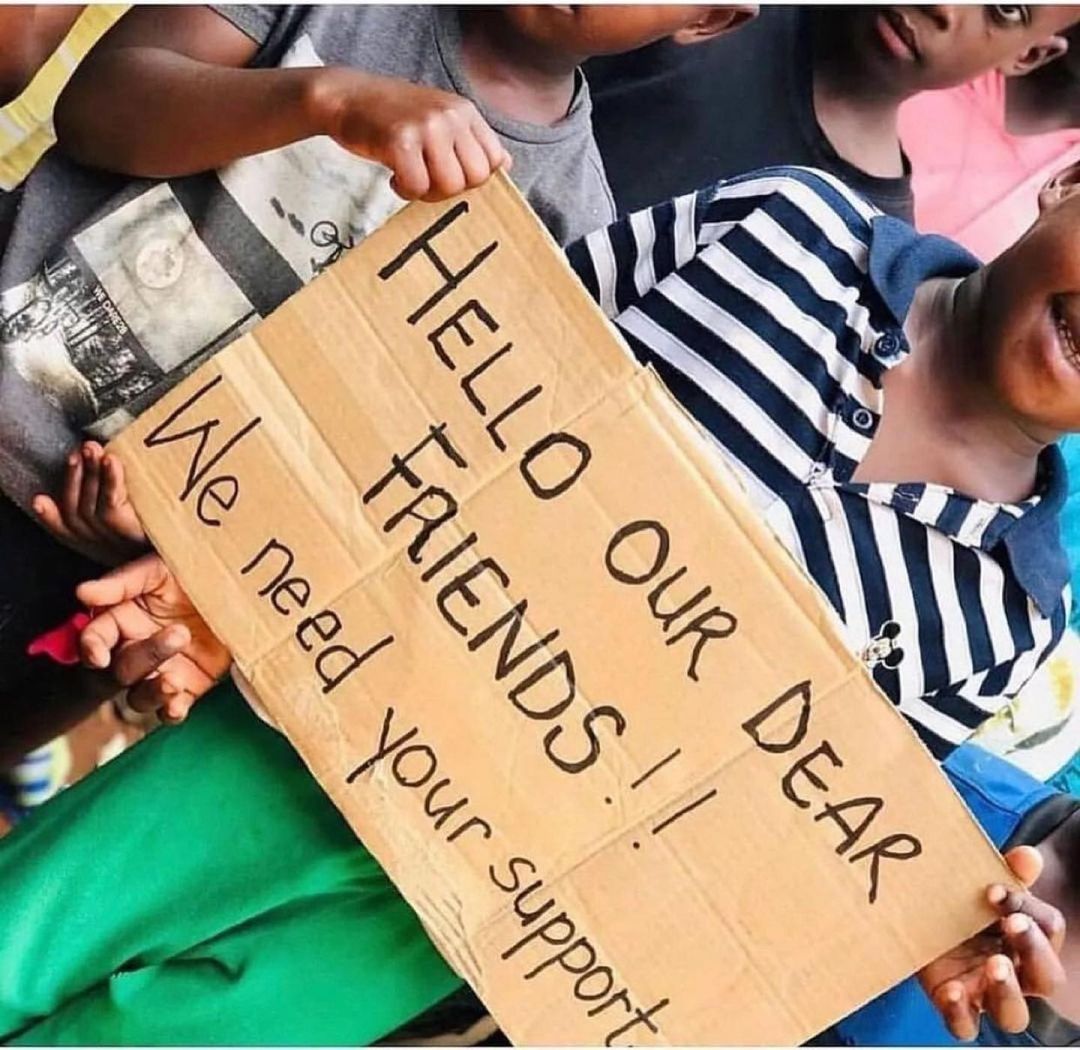 HELLO OUR DEAR
FRIENDS!!
We need your support